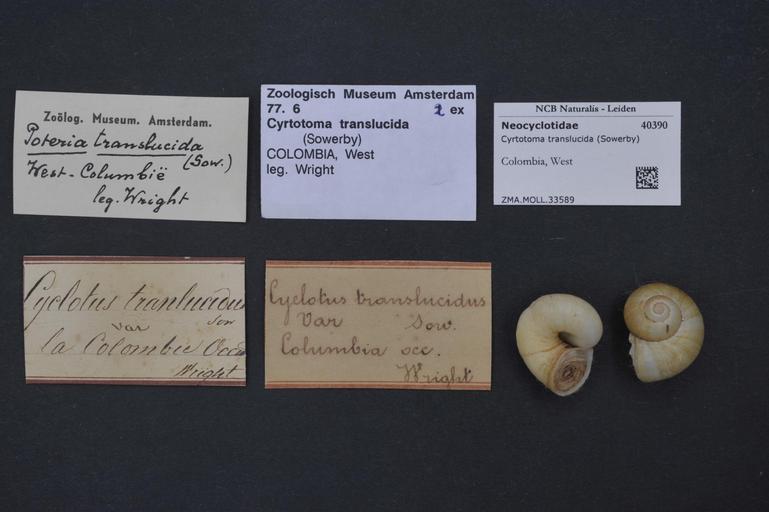 Zoölog. Museum. Amsterdam.
Poteria translucida
(Sow.)
West-Columbië
leg. Wright
Zoologisch Museum Amsterdam
77. 6 2 ex
Cyrtotoma translucida
(Sowerby)
COLOMBIA, West
leg. Wright
NCB Naturalis - Leiden
Neocyclotidae 40390
Cyrtotoma translucida (Sowerby)
Colombia, West
ZMA.MOLL.33589
Cyclotus tranlucidus
var Sow
la Colombie Occ
Wright
Cyclotus translucidus
Var Sow.
Columbia occ.
Wright